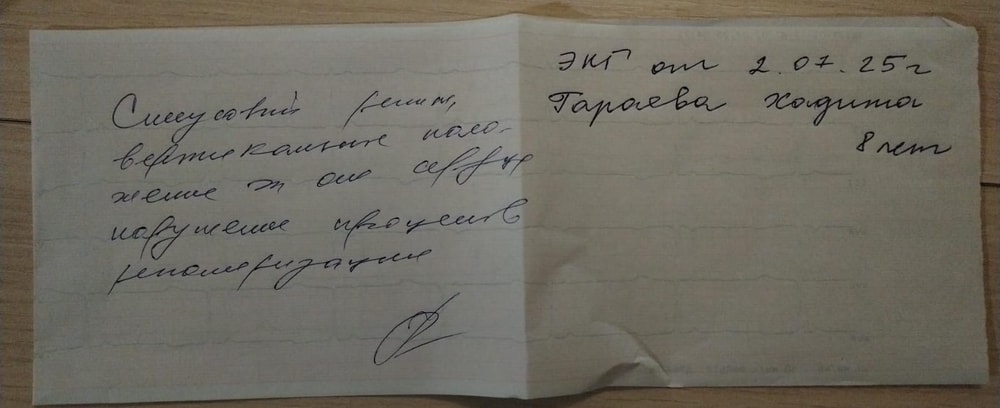 ЭКГ от 2.07.25г
Гараева Хадижа
8 лет
Синусовый ритм,
вертикальное поло-
жение эл оси сердца
нарушение процессов
реполяризации